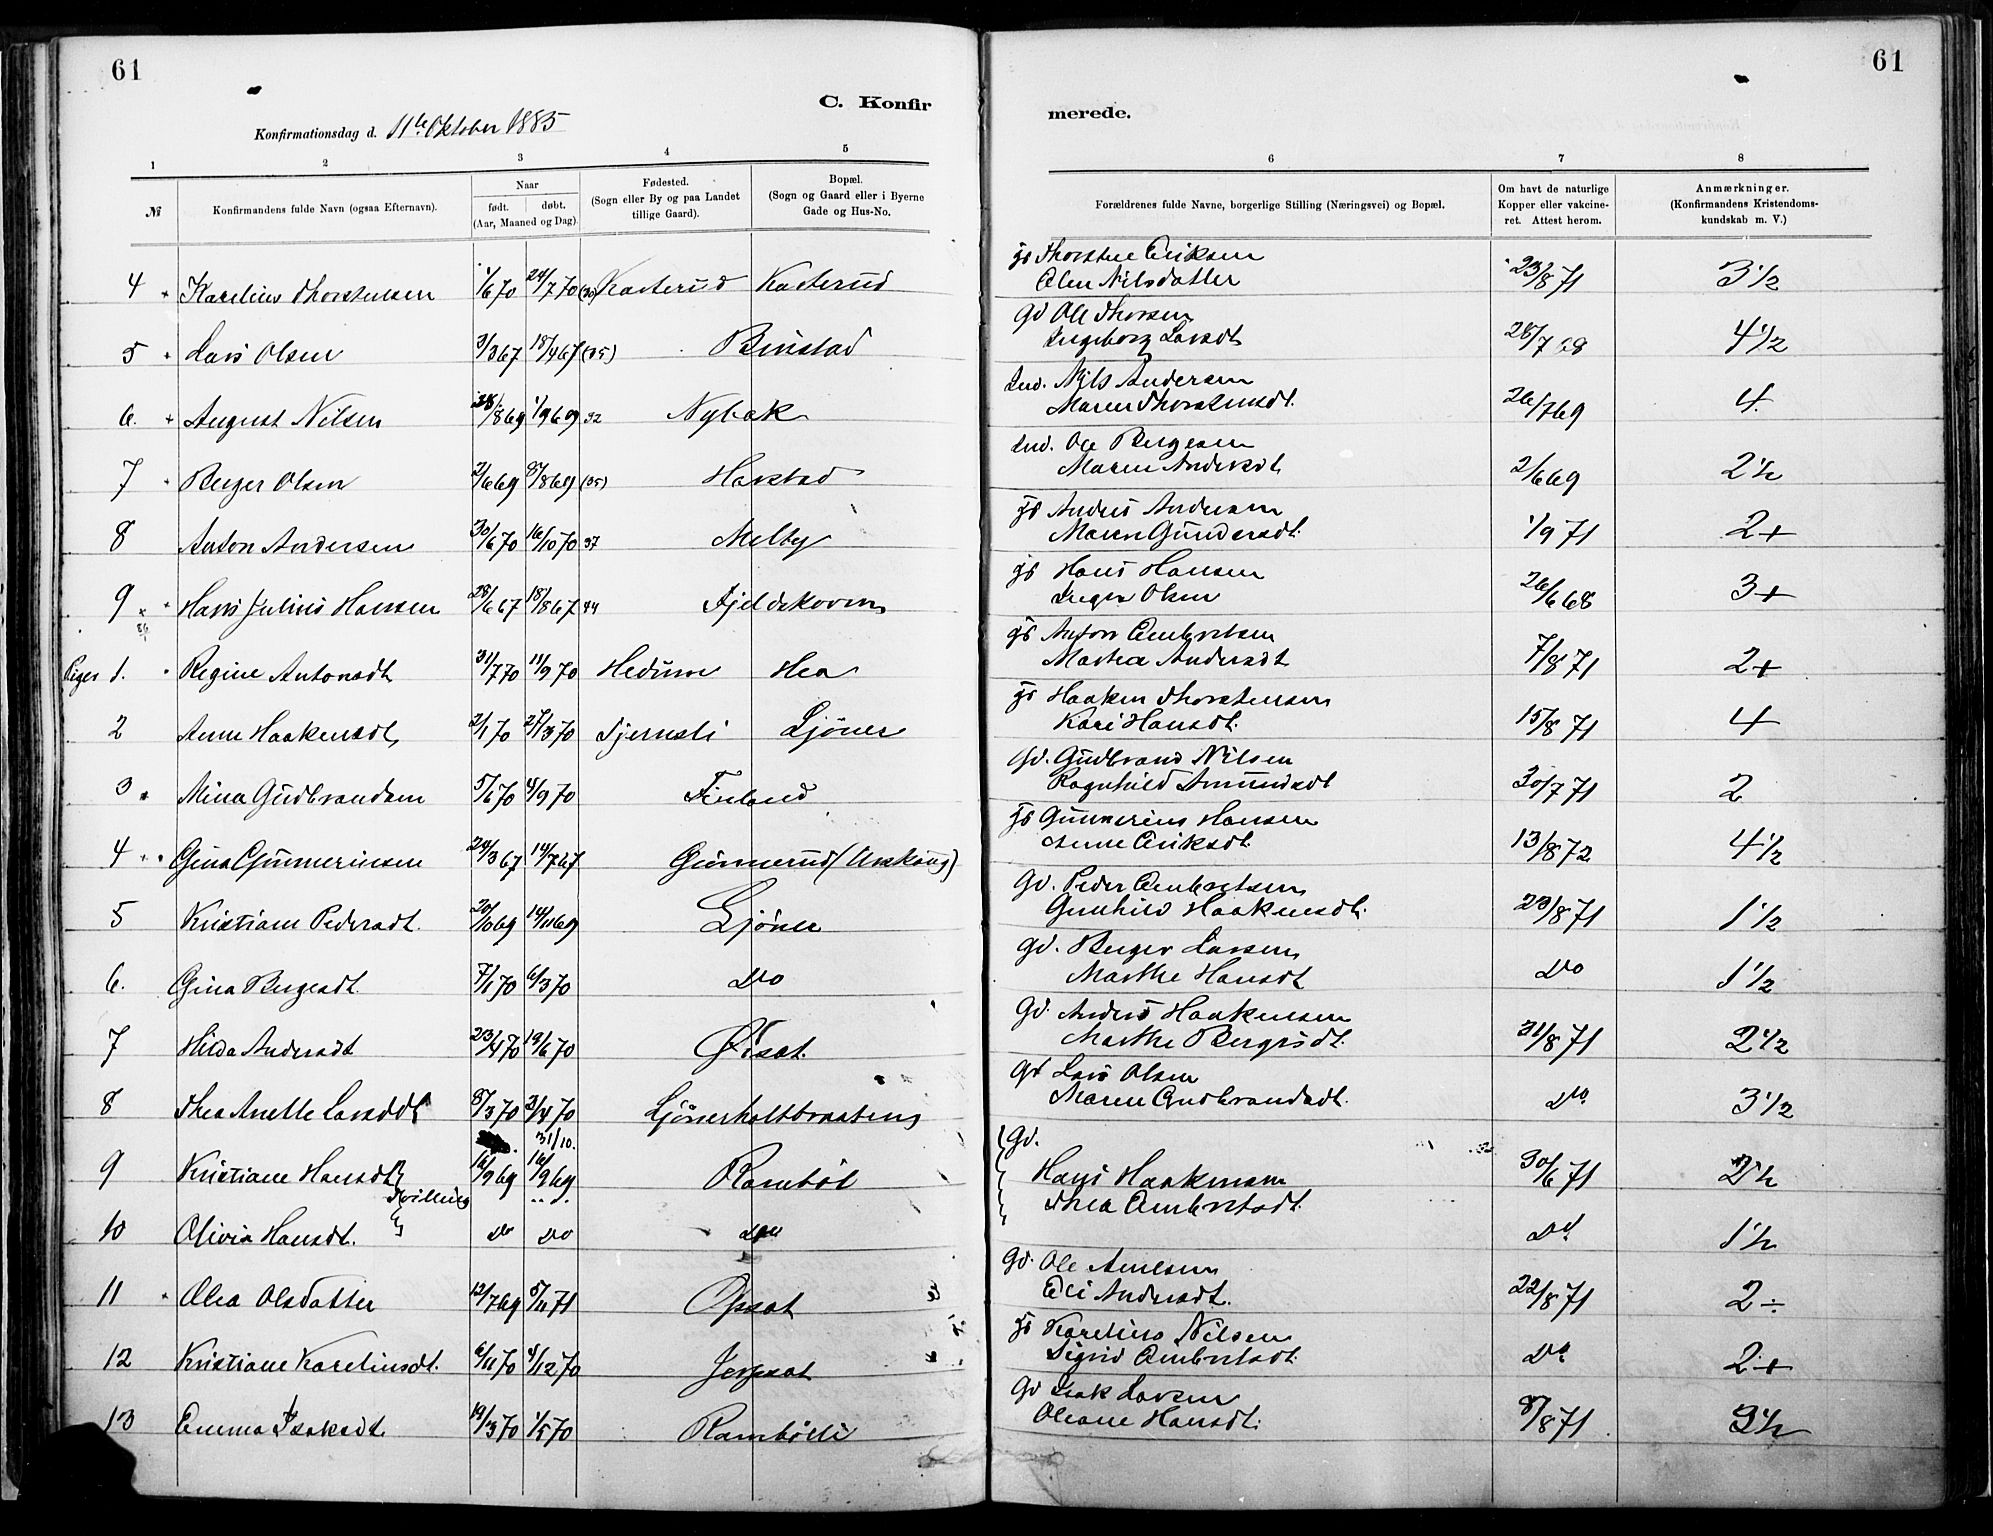 61
61
C. Konfirmerede.
Konfirmationsdag d. 11te Oktober 1885
1 2 3 4 5 6 7 8
№
Konfirmandens fulde Navn (ogsaa Efternavn).
Naar
født. døbt.
(Aar, Maaned og Dag).
Fødested.
(Sogn eller By og paa Landet
tillige Gaard).
Bopæl.
(Sogn og Gaard eller i Byerne
Gade og Hus-No.
Forældrenes fulde Navne, borgerlige Stilling (Næringsvei) og Bopæl.
Om havt de naturlige
Kopper eller vakcine-
ret. Attest herom.
Anmærkninger.
(Konfirmandens Kristendoms-
kundskab m. V.)
4 Karelius Thorstensen 1/6 70 24/7 70 (30) Kasterud Kasterud gs Thorsten Eriksen 23/8 71 3 1/2
Olea Nilsdatter
5 Lars Olsen 3/3 67 18/4 67 (35) Binstad gd Ole Thorsen 28/7 68 4 1/2
Ingeborg Larsdt
6. August Nilsen 28/8 69 1/9 69 32 Nybak Ind. Nils Andersen 26/7 69 4
Maren Thorstensdt.
7 Berger Olsen 2/6 69 8/8 69 (35) Harstad Ind. Ole Bergesen 2/6 69 2 1/2
Maren Andersdt
8 Anton Andersen 30/6 70 16/10 70 37 Melby gs Anders Andersen 1/9 71 2+
Maren Gundersdt.
9 Hans Julius Hansen 28/6 67 18/8 67 44 Fjeldskoven gs Hans Hansen 26/6 68 3+
Inger Olsen
Piger 1. Regine Antonsdt 31/7 70 11/9 70 Hedum Hea gs Anton Embretsen 7/8 71 2+
Marthea Andersdt
2 Anne Haakensdt 2/1 70 27/3 70 Tjernsli Ljöner gs Haaken Thorstensen 15/8 71 4
Kari Hansdt.
3 Mina Gudbrandsen 5/6 70 4/9 70 Finland Gd. Gudbrand Nilsen 30/7 71 2
Ragnhild Amundsdt
4 Gina Gunneriusen 24/3 67 14/7 67 Gunnerud (Urskoug) gs Gunnerius Hansen 13/8 72 4 1/2
Anne Eriksdt.
5 Kristiane Pedersdt. 20/10 69 14/11 69 Ljöner Gd. Peder Embretsen 23/8 71 1 1/2
Gunhild Haakensdt.
6. Gina Bergesdt. 7/1 70 6/3 70 Do gd. Berger Larsen Do 1 1/2
Marthe Hansdt
7 Hilda Andersdt 23/4 70 19/6 70 Opsat. Gd. Anders Haakensen 31/8 71 2 1/2
Marthe Bergersdt.
8 Thea Anette Larsdt 8/3 70 3/4 70 Ljönerholtbraaten gd Lars Olsen Do 3 1/2
Maren Gudbrandsdt.
31/10.
9 Kristiane Hansdt 16/9 69 16/9 69 Ramböl Gd. Hans Haakensen 30/6 71 2 1/2
Tvillinger
Thea Embretsdt.
10 Olivia Hansdt. Do Do Do Do 1 1/2
11 Olea Olsdatter 12/7 69 5/11 71 Opsat Gd. Ole Amlesen 22/8 71 2÷
Edli Andersdt.
12 Kristiane Karelinsdt. 6/11 70 4/12 70 Jerpsat gs Karelius Nilsen Do 2+
Sigrid Embretsdt.
13 Emma Isaksdt. 19/3 70 1/5 70 Rambölli Gd Isak Larsen 8/8 71 3 1/2
Oleane Hansdt.